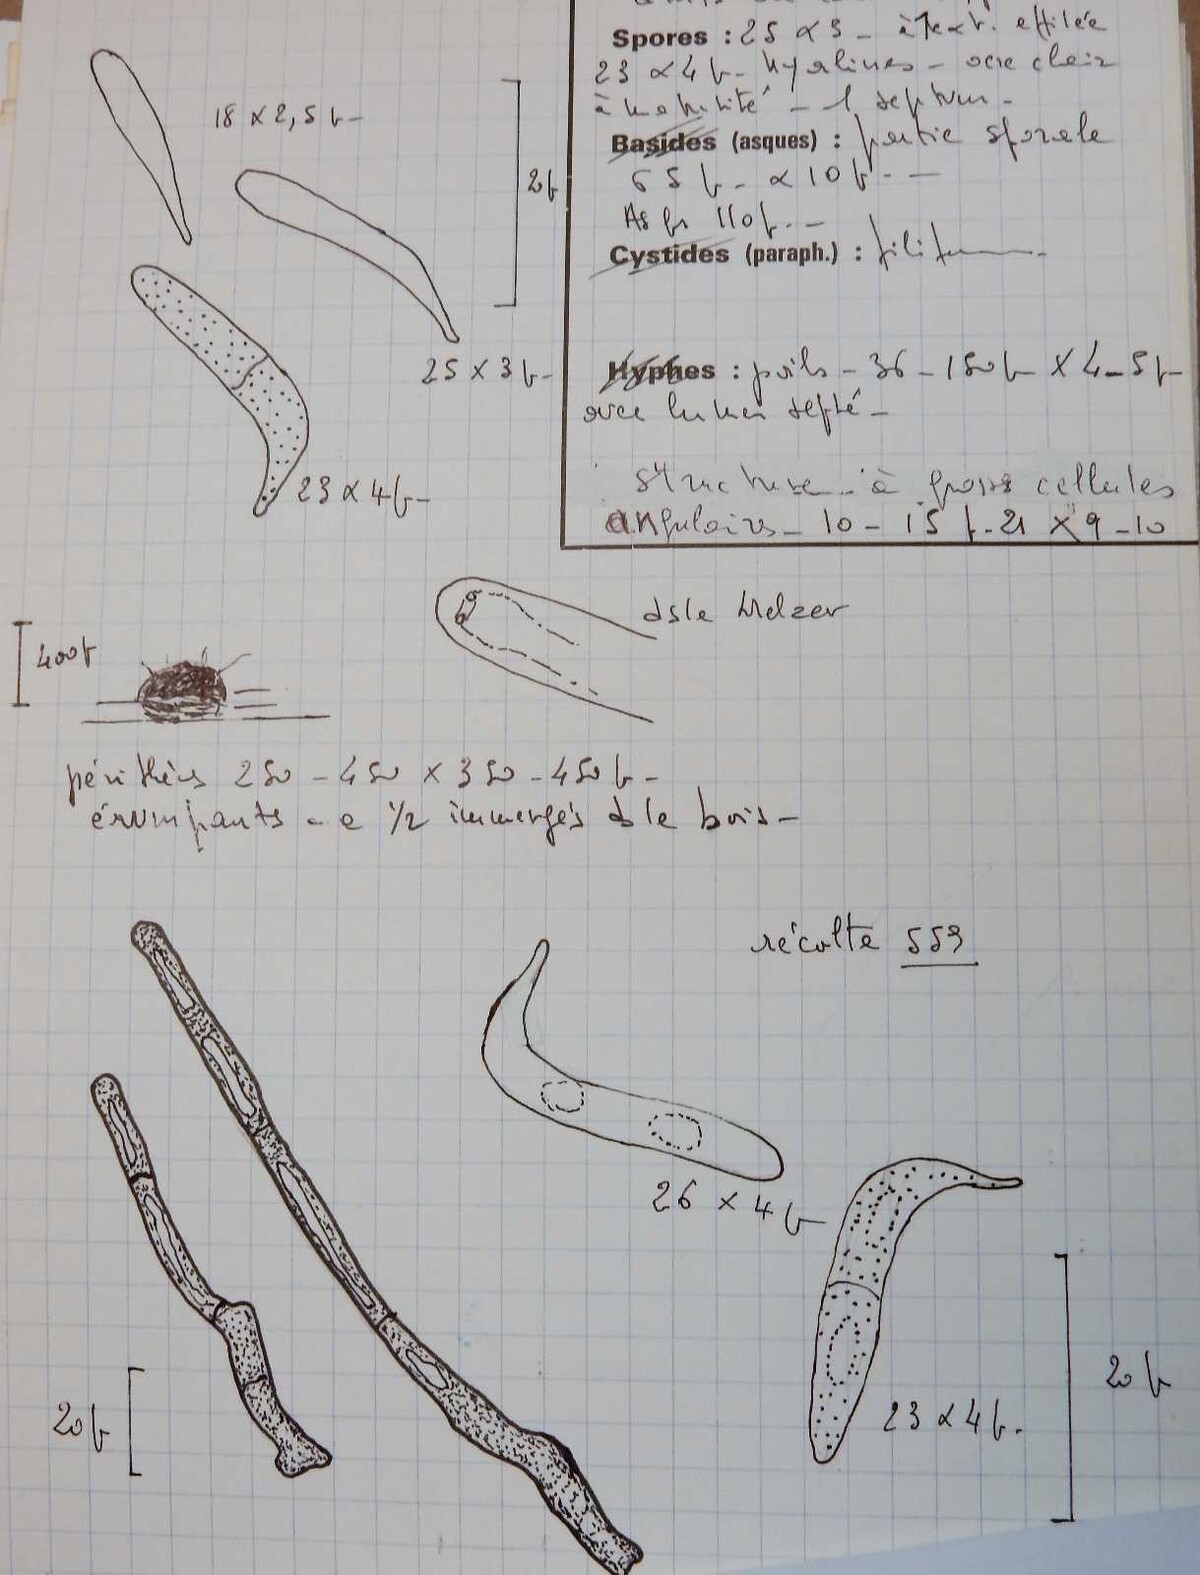 Spores : 25 x 3 - à 1 ext. effilée
23 x 4 µ - hyalines - ocre clair
à maturité - 1 septum -
Basides (asques) : partie sporale
65 µ - x 10 µ -
110 µ -
Cystides (paraph.) :
Hyphes : poils - 36 - 150 µ x 4 - 5 µ
avec lumen septé -
structure à grosses cellules
angulaires - 10 - 15 µ - 21 x 9 - 10
18 x 2,5 µ -
25 x 3 µ -
23 x 4 µ -
400 µ
ds le Melzer
périthèces 250 - 450 x 350 - 450 µ -
érumpants - a 1/2 immergés ds le bois -
récolte 559
26 x 4 µ
23 x 4 µ -
20 µ
20 µ